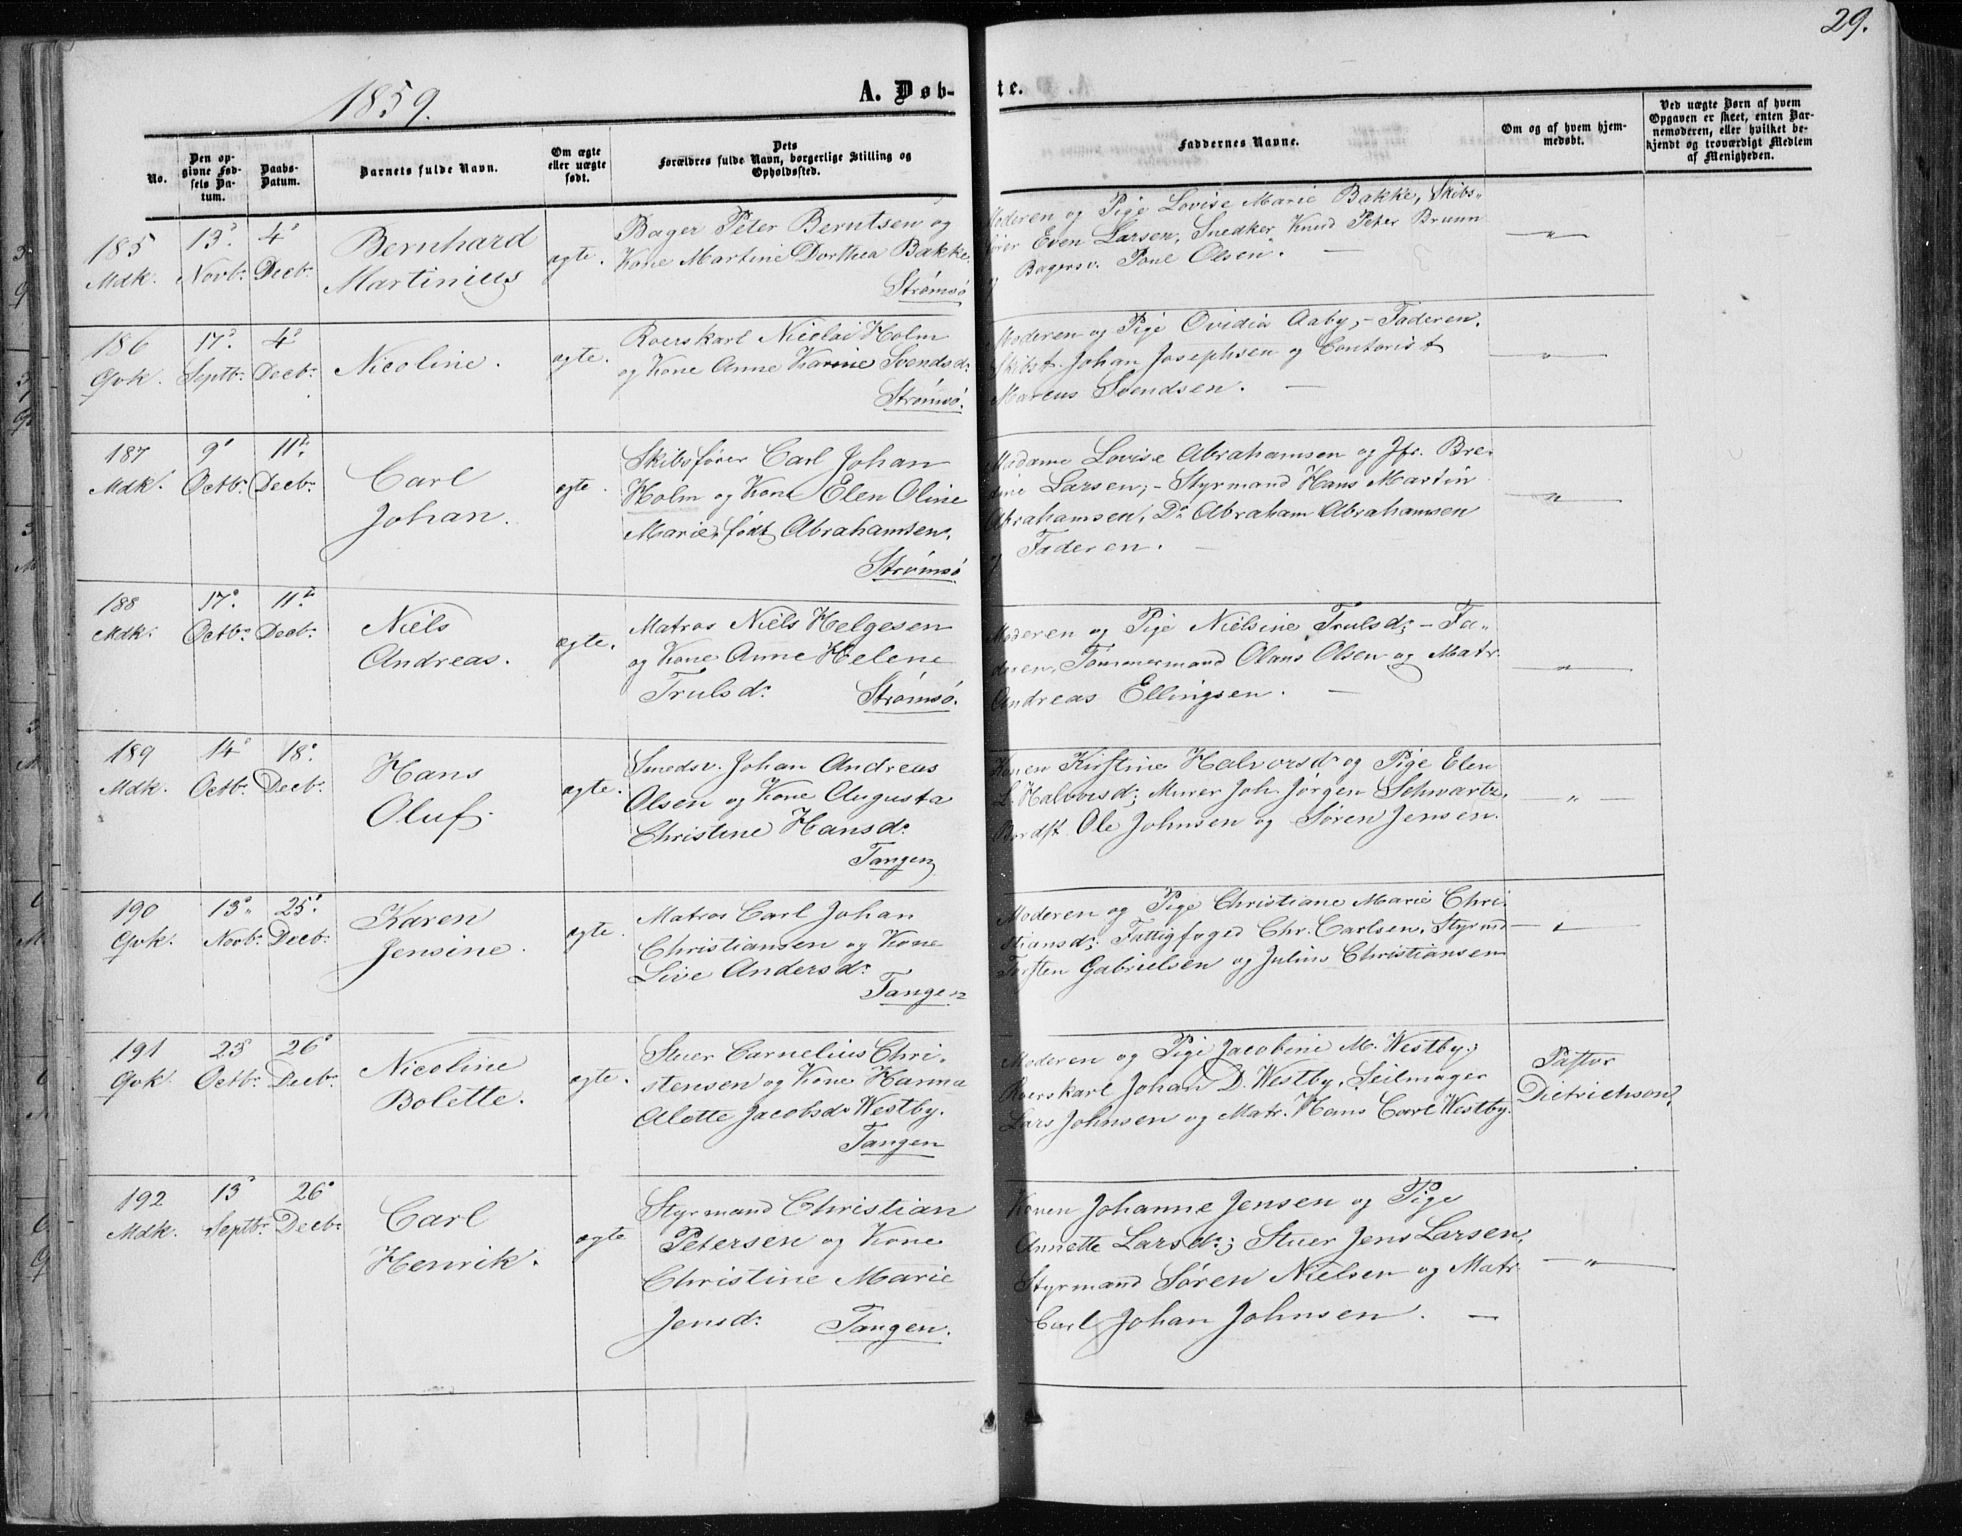 29.
1859.
A. Døb-
te.
No.
Den op-
givne Fød-
sels Da-
tum.
Daabs-
Datum.
Barnets fulde Navn.
Om ægte
eller uægte
født.
Dets
Forældres fulde Navn, borgerlige Stilling og
Opholdssted.
Faddernes Navne.
Om og af hvem hjem-
medøbt.
Ved uægte Børn af hvem
Opgaven er skeet, enten Bar-
nemoderen, eller hvilket be-
kjendt og troværdigt Medlem
af Menigheden.
185
Mdk.
13de
Novbr.
4de
Decbr.
Bernhard
Martinius
ægte.
Bager Peter Berntsen og
Kone Martine Dorthea Bakke.
Strømsø
Moderen og Pige Lovise Marie Bakke, Skibs-
fører Even Larsen, Snedker Knud Peter Bruun
og Bagersv. Poul Olsen. —
— " —
186
Qvk.
17de
Septbr.
4de
Decbr.
Nicoline.
ægte.
Roerskarl Nicolai Holm
og Kone Anne Karine Svendsdr.
Strømsø.
Moderen og Pige Ovidia Aaby, – Faderen,
Skibst. Johan Josephsen og Contorist
Marcus Svendsen. —
— " —
187
Mdk.
9de
Octbr.
11te
Decbr.
Carl
Johan.
ægte.
Skibsfører Carl Johan
Holm og Kone Elen Oline
Marie, født Abrahamsen.
Strømsø
Madame Lovise Abrahamsen og Jfr. Bre-
dine Larsen; – Styrmand Hans Martin
Abrahamsen, Do Abraham Abrahamsen
og Faderen. —
— " —
188
Mdk.
17de
Octbr.
11te
Decbr.
Niels
Andreas.
ægte.
Matros Niels Helgesen
og Kone Anne Helene
Trulsdr.
Strømsø.
Moderen og Pige Nielsine Trulsd; – Fa-
deren, Tømmermand Olaus Olsen og Matr.
Andreas Ellingsen. —
— " —
189
Mdk.
14de
Octbr.
18de
Decbr.
Hans
Oluf.
ægte.
Smedsv. Johan Andreas
Olsen og Kone Augusta
Christine Hansdr.
Tangen
Konen Kirstine Halvorsdr og Pige Elen
L. Halvorsd; Murer Joh. Jørgen Schwartz,
Bordst. Ole Johnsen og Søren Jensen.
— " —
190
Qvk.
13de
Novbr.
25de
Decbr.
Karen
Jensine.
ægte.
Matros Carl Johan
Christiansen og Kone
Live Andersdr.
Tangen
Moderen og Pige Christiane Marie Chri-
stiansd; Fattigfoged Chr. Carlsen, Styrmd
Torsten Gabrielsen og Julius Christiansen
— " —
191
Qvk.
23
Octbr.
26de
Decbr.
Nicoline
Bolette.
ægte.
Stuer Carnelius Chri-
stensen og Kone Hanna
Alette Jacobsdr Westby.
Tangen
Moderen og Pige Jacobine M. Westby;
Roerskarl Johan D. Westby, Seilmager
Lars Johnsen og Matr. Hans Carl Westby.
Pastor
Dietrichson.
192
Mdk.
13de
Septbr.
26de
Decbr.
Carl
Henrik.
ægte
Styrmand Christian
Petersen og Kone
Christine Marie
Jensdr.
Tangen.
Konen Johanne Jensen og Pige
Annette Larsdr.; Stuer Jens Larsen,
Styrmand Søren Nielsen og Matr.
Carl Johan Johnsen. —
— " —